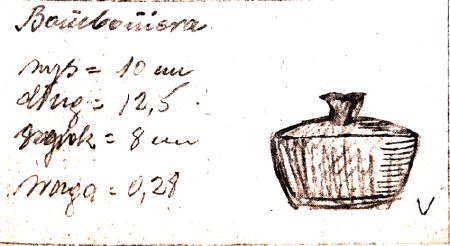 Bomboniera
wys = 10 cm
dług = 12,5
szerok = 8 cm
waga = 0,28
V